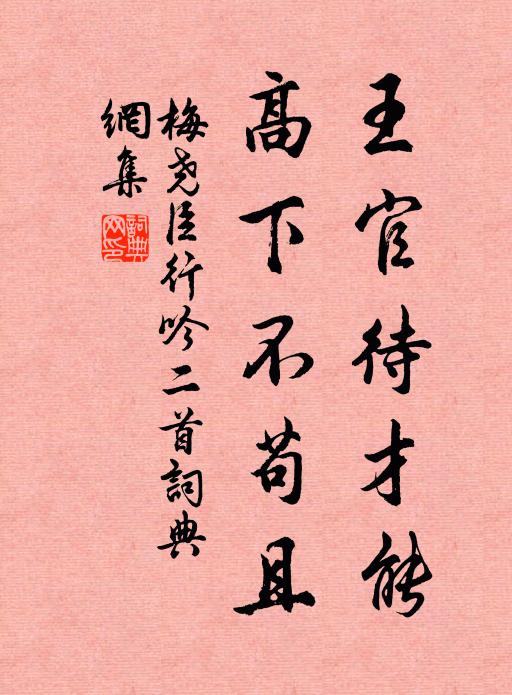 王官待才能
高下不苟且
梅尧臣行吟二首詞典
網集
詞典
网印